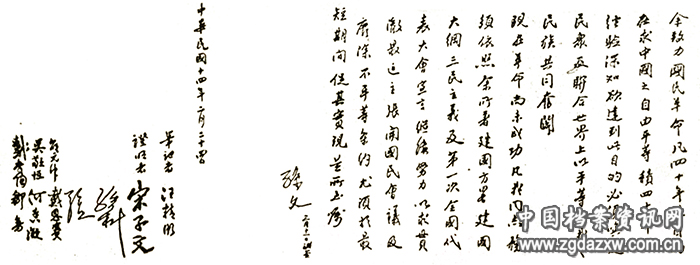 余致力國民革命凡四十年其目
在求中國之自由平等積四十
經驗深知欲達到此目的必
民眾及聯合世界上以平等待我
民族共同奮鬥
現在革命尚未成功凡我同志務
須依照余所著建國方略建國
大綱三民主義及第一次全國代
表大會宣言繼續努力以求貫
徹最近主張開國民會議及
廢除不平等條約尤須於最
短期間促其實現是所至囑
孫文 三月十一日補簽
中華民國十四年二月二十四日
筆記者 汪精衛
證明者 宋子文
孫科
邵元沖 戴恩賽
吳敬恆 何香凝
戴季陶 鄒魯
中国档案资讯网
www.zgdazxw.com.cn